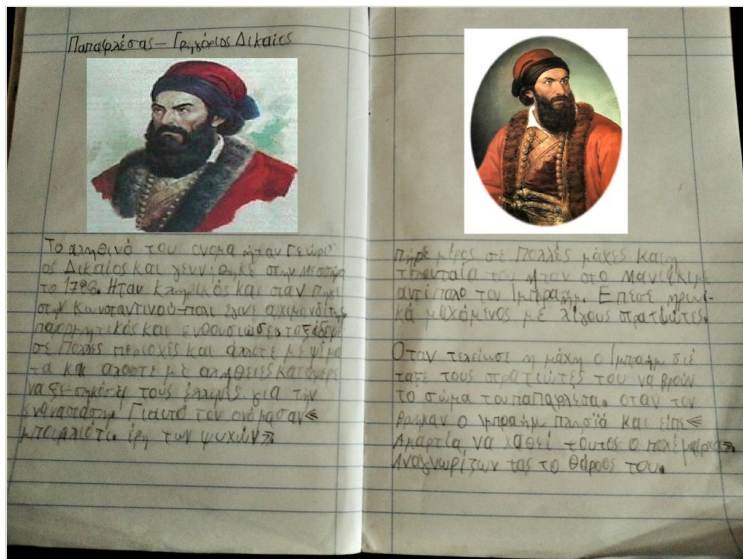 Παπαφλέσας - Γρηγόριος Δικαίος
Το αληθινό του ονομα ήταν Γεώργι
ος Δικαίος και γεννήθηκε στην Μεσσήνη
το 1788. Ηταν κληρικός και σταν Πήγε
στην Κωνσταντινού-πολι έγινε αρχιμανδίτης
παρορμητικός και ενθουσιώδες. ταξίδεψε
σε Πολλές περιοχές και άλλοτε με ψέμα
τα και άλλοτε με αλήθειες κατάφερε
να ξε-σηκόσει τους έλληνες για την
επανάσταση. Γιαυτό τον ονόμασαν «
μπουρλιότι έρη των ψυχών».
Πήρε μέρος σε Πολλές μάχες και η
τελευταία του ήταν στο Μανιάκι με
αντίπαλο τον Ιμπραήμ. Επεσε ηρωι-
κά μαχόμενος με λίγους στρατιώτες.
Οταν τελείωσε η μάχη ο Ιμπραήμ διέ
ταξε τους στρατιώτες του να βρούν
το σώμα του παπαφλέσα. οταν τον
βρήκαν ο ιμπραήμ πλησία και είπε «
Αμαρτία να χαθεί τουτος ο πολέμαρχος».
Αναγνωρίζων τας το θάρρος του.